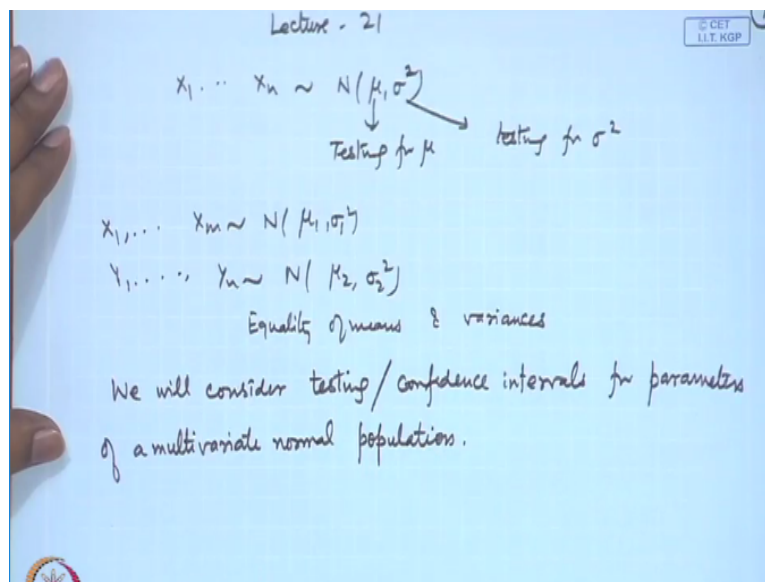 Lecture - 21
© CET
I.I.T. KGP
X₁ ... Xₙ ~ N(μ, σ²)
Testing for μ
testing for σ²
X₁, ... Xₘ ~ N(μ₁, σ₁²)
Y₁, ..., Yₙ ~ N(μ₂, σ₂²)
Equality of means & variances
We will consider testing/confidence intervals for parameters
of a multivariate normal population.